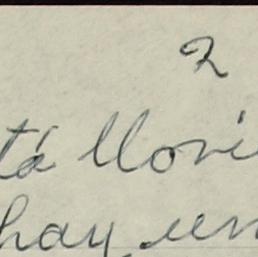 2
tá llovi
hay un